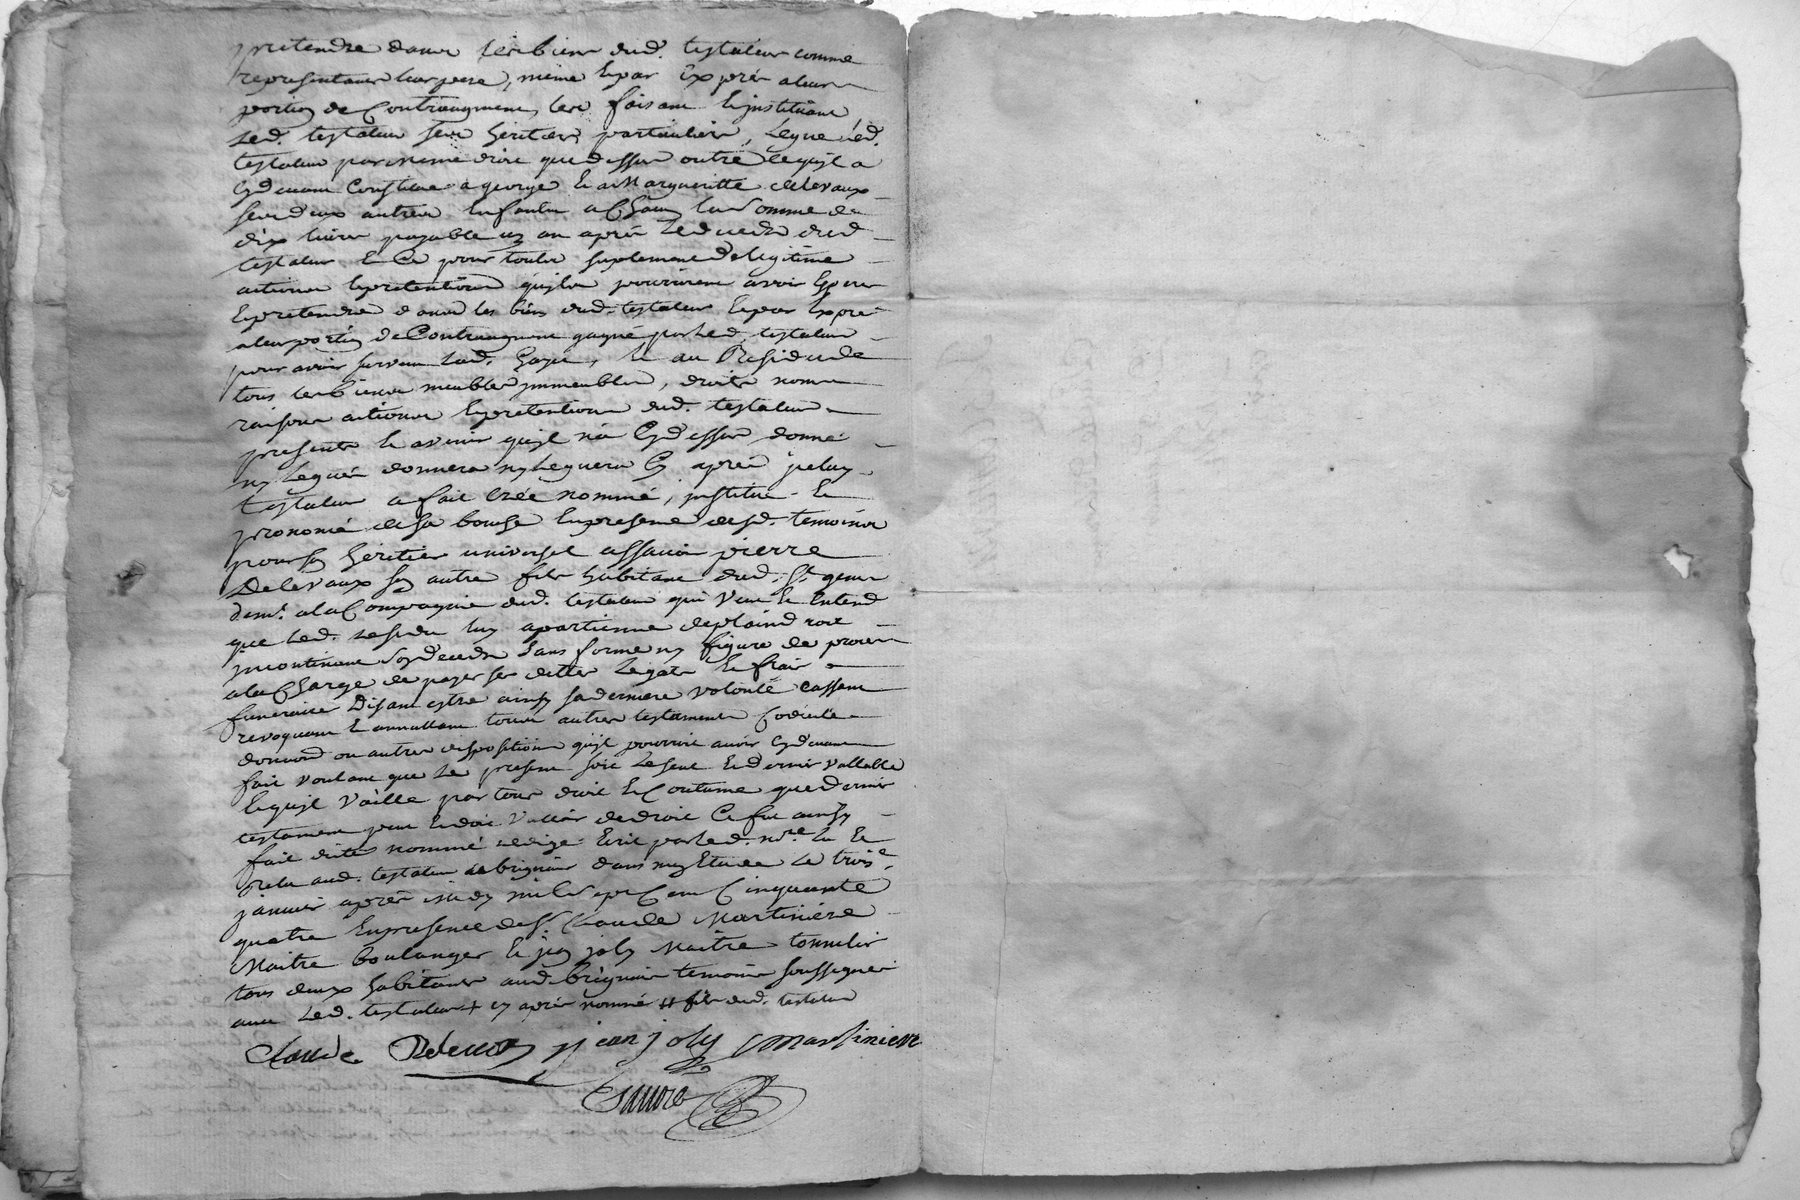 pretendre dans les biens dud. testateur comme
representans leur pere, meme et par exprés a leurs
portion de Contraugment, les faisant et instituant
Led. testateur ses heritiers particuliers, Legue led.
testateur par meme droit que dessus outre ce qu'jl a
Cydevant Constitué a george Et a Margueritte delevaux
ses deux autres Enfants a Chacun la somme de
dix livres payable un an aprés Le deceds dud.
testateur Et Ce pour toutes suplement de legitime
actions Et pretentions qu'jls pourroient avoir Esperer
Et pretendre dans les biens dud. testateur Et par Exprés
a leur portion de Contraugment gagné par led. testateur
pour avoir survecu lad. Et au Residu de
tous les biens meubles jmmeubles, droits noms
raisons actions Et pretentions dud. testateur
presents Et avenir qu'jl n'a Cydessus donné
ny Legué donnera ny Leguera Cy aprés jceluy
testateur a fait Créé nommé, jnstitué Et
prononcé de sa bouche En presence desd. temoins
pour son heritier universel assavoir pierre
Delevaux son autre fils habitant dud. St. genis
demt. a la Compagnie dud. testateur qui Veut Et Entend
que led. residu luy apartienne de plaind roit
jncontinent son deceds sans forme ny figure de proces
a la Charge de payer ses dettes Legats Et frais
funeraire Disant estre ainsy sa derniere volonté Cassant
revoquant Et annullant tous autres testaments Codicille
donnaons ou autres dispositions qu'jl pourroit avoir Cydevant
fait voulant que Le present soit Le seul Et dernier vallable
Et qu'jl Vaille par tous droit Et Coutume que dernier
testament peut Et doit Valloir de droit Ce fut ainsy
fait dicté nommé redigé Ecrit par led. nore. lu Et
relu aud. testateur a brignais dans mon Etude Le troise.
janvier aprés midy mil sept Cent Cinquante
quatre En presence de sr. Claude Martiniere
Maitre boulanger Et jean joly Maitre tonnelier
tous deux habitants aud. brignais temoins soussignes
avec Led. testateur + cy aprés nommé # fils dud. testateur
Claude jean joly Martiniere